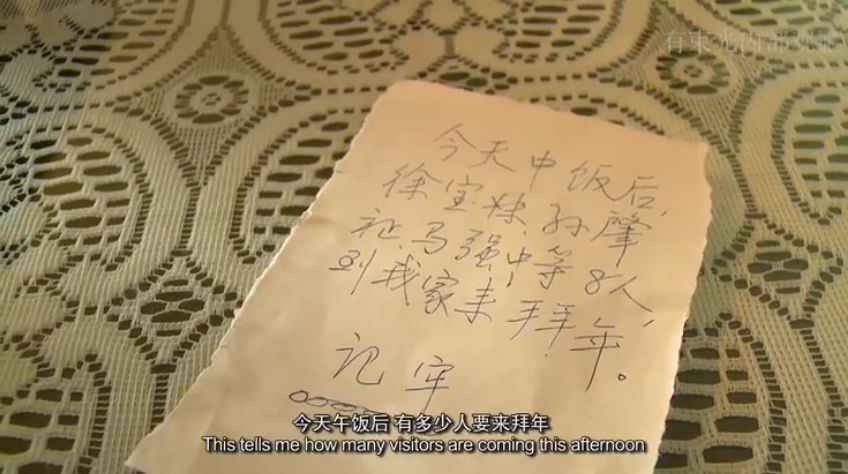 今天中饭后,
徐宝妹、孙肇
祉、马强中等8人,
到我家来拜年。
记牢
今天午饭后 有多少人要来拜年
This tells me how many visitors are coming this afternoon